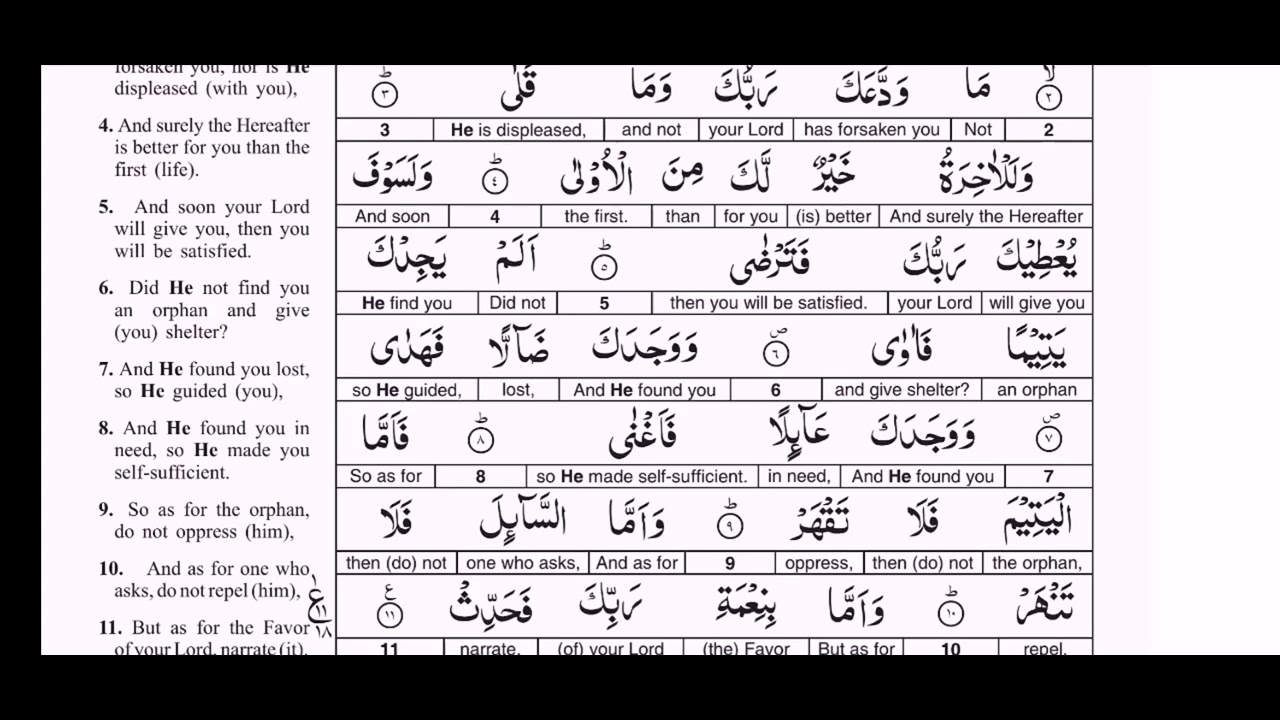 forsaken you, nor is He
displeased (with you),
4. And surely the Hereafter
is better for you than the
first (life).
5. And soon your Lord
will give you, then you
will be satisfied.
6. Did He not find you
an orphan and give
(you) shelter?
7. And He found you lost,
so He guided (you),
8. And He found you in
need, so He made you
self-sufficient.
9. So as for the orphan,
do not oppress (him),
10. And as for one who
asks, do not repel (him),
11. But as for the Favor
of your Lord, narrate (it).
ع ١١ ١٨
٢ مَا وَدَّعَكَ رَبُّكَ وَمَا قَلٰى ٣
3 He is displeased, and not your Lord has forsaken you Not 2
وَلَلْاٰخِرَةُ خَيْرٌ لَّكَ مِنَ الْاُوْلٰى ٤ وَلَسَوْفَ
And soon 4 the first. than for you (is) better And surely the Hereafter
يُعْطِيْكَ رَبُّكَ فَتَرْضٰى ٥ اَلَمْ يَجِدْكَ
He find you Did not 5 then you will be satisfied. your Lord will give you
يَتِيْمًا فَاٰوٰى ٦ وَوَجَدَكَ ضَآلًّا فَهَدٰى
so He guided, lost, And He found you 6 and give shelter? an orphan
٧ وَوَجَدَكَ عَآئِلًا فَاَغْنٰى ٨ فَاَمَّا
So as for 8 so He made self-sufficient. in need, And He found you 7
الْيَتِيْمَ فَلَا تَقْهَرْ ٩ وَاَمَّا السَّآئِلَ فَلَا
then (do) not one who asks, And as for 9 oppress, then (do) not the orphan,
تَنْهَرْ ١٠ وَاَمَّا بِنِعْمَةِ رَبِّكَ فَحَدِّثْ ١١
11 narrate. (of) your Lord (the) Favor But as for 10 repel.